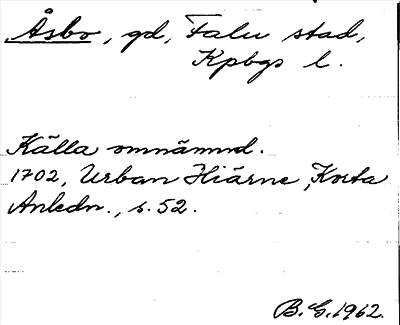 Åsbo, gd, Falu stad,
Kpbgs l.
Källa omnämnd.
1702, Urban Hiärne, Korta
Anledn., s. 52.
B.G. 1962.